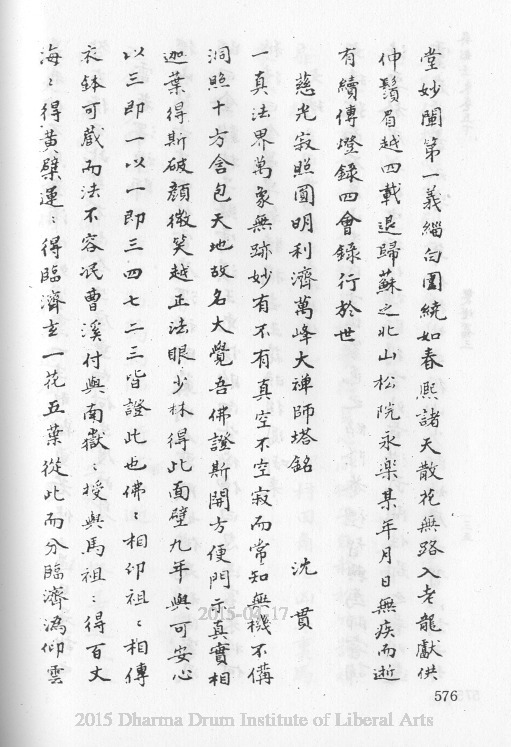 堂妙闡第一義緇白圍繞如春熈諸天散花無路入老龍獻供
仲鬚眉越四載退歸蘇之北山松院永樂某年月日無疾而逝
有續傳燈錄四會錄行於世
慈光寂照圓明利濟萬峰大禅師塔銘　沈貫
一真法界萬象無跡妙有不有真空不空寂而常知無機不備
洞照十方含包天地故名大覺吾佛證斯開方便門示真實相
迦葉得斯破顏微笑越正法眼少林得此面壁九年與可安心
以三即一以一即三四七二三皆證此也佛〻相仰祖〻相傳
衣鉢可戲而法不容泯曹溪付與南嶽〻授與馬祖〻得百丈
海〻得黃檗運〻得臨濟玄一花五葉從此而分臨濟溈仰雲
576
2015-03-17
2015 Dharma Drum Institute of Liberal Arts